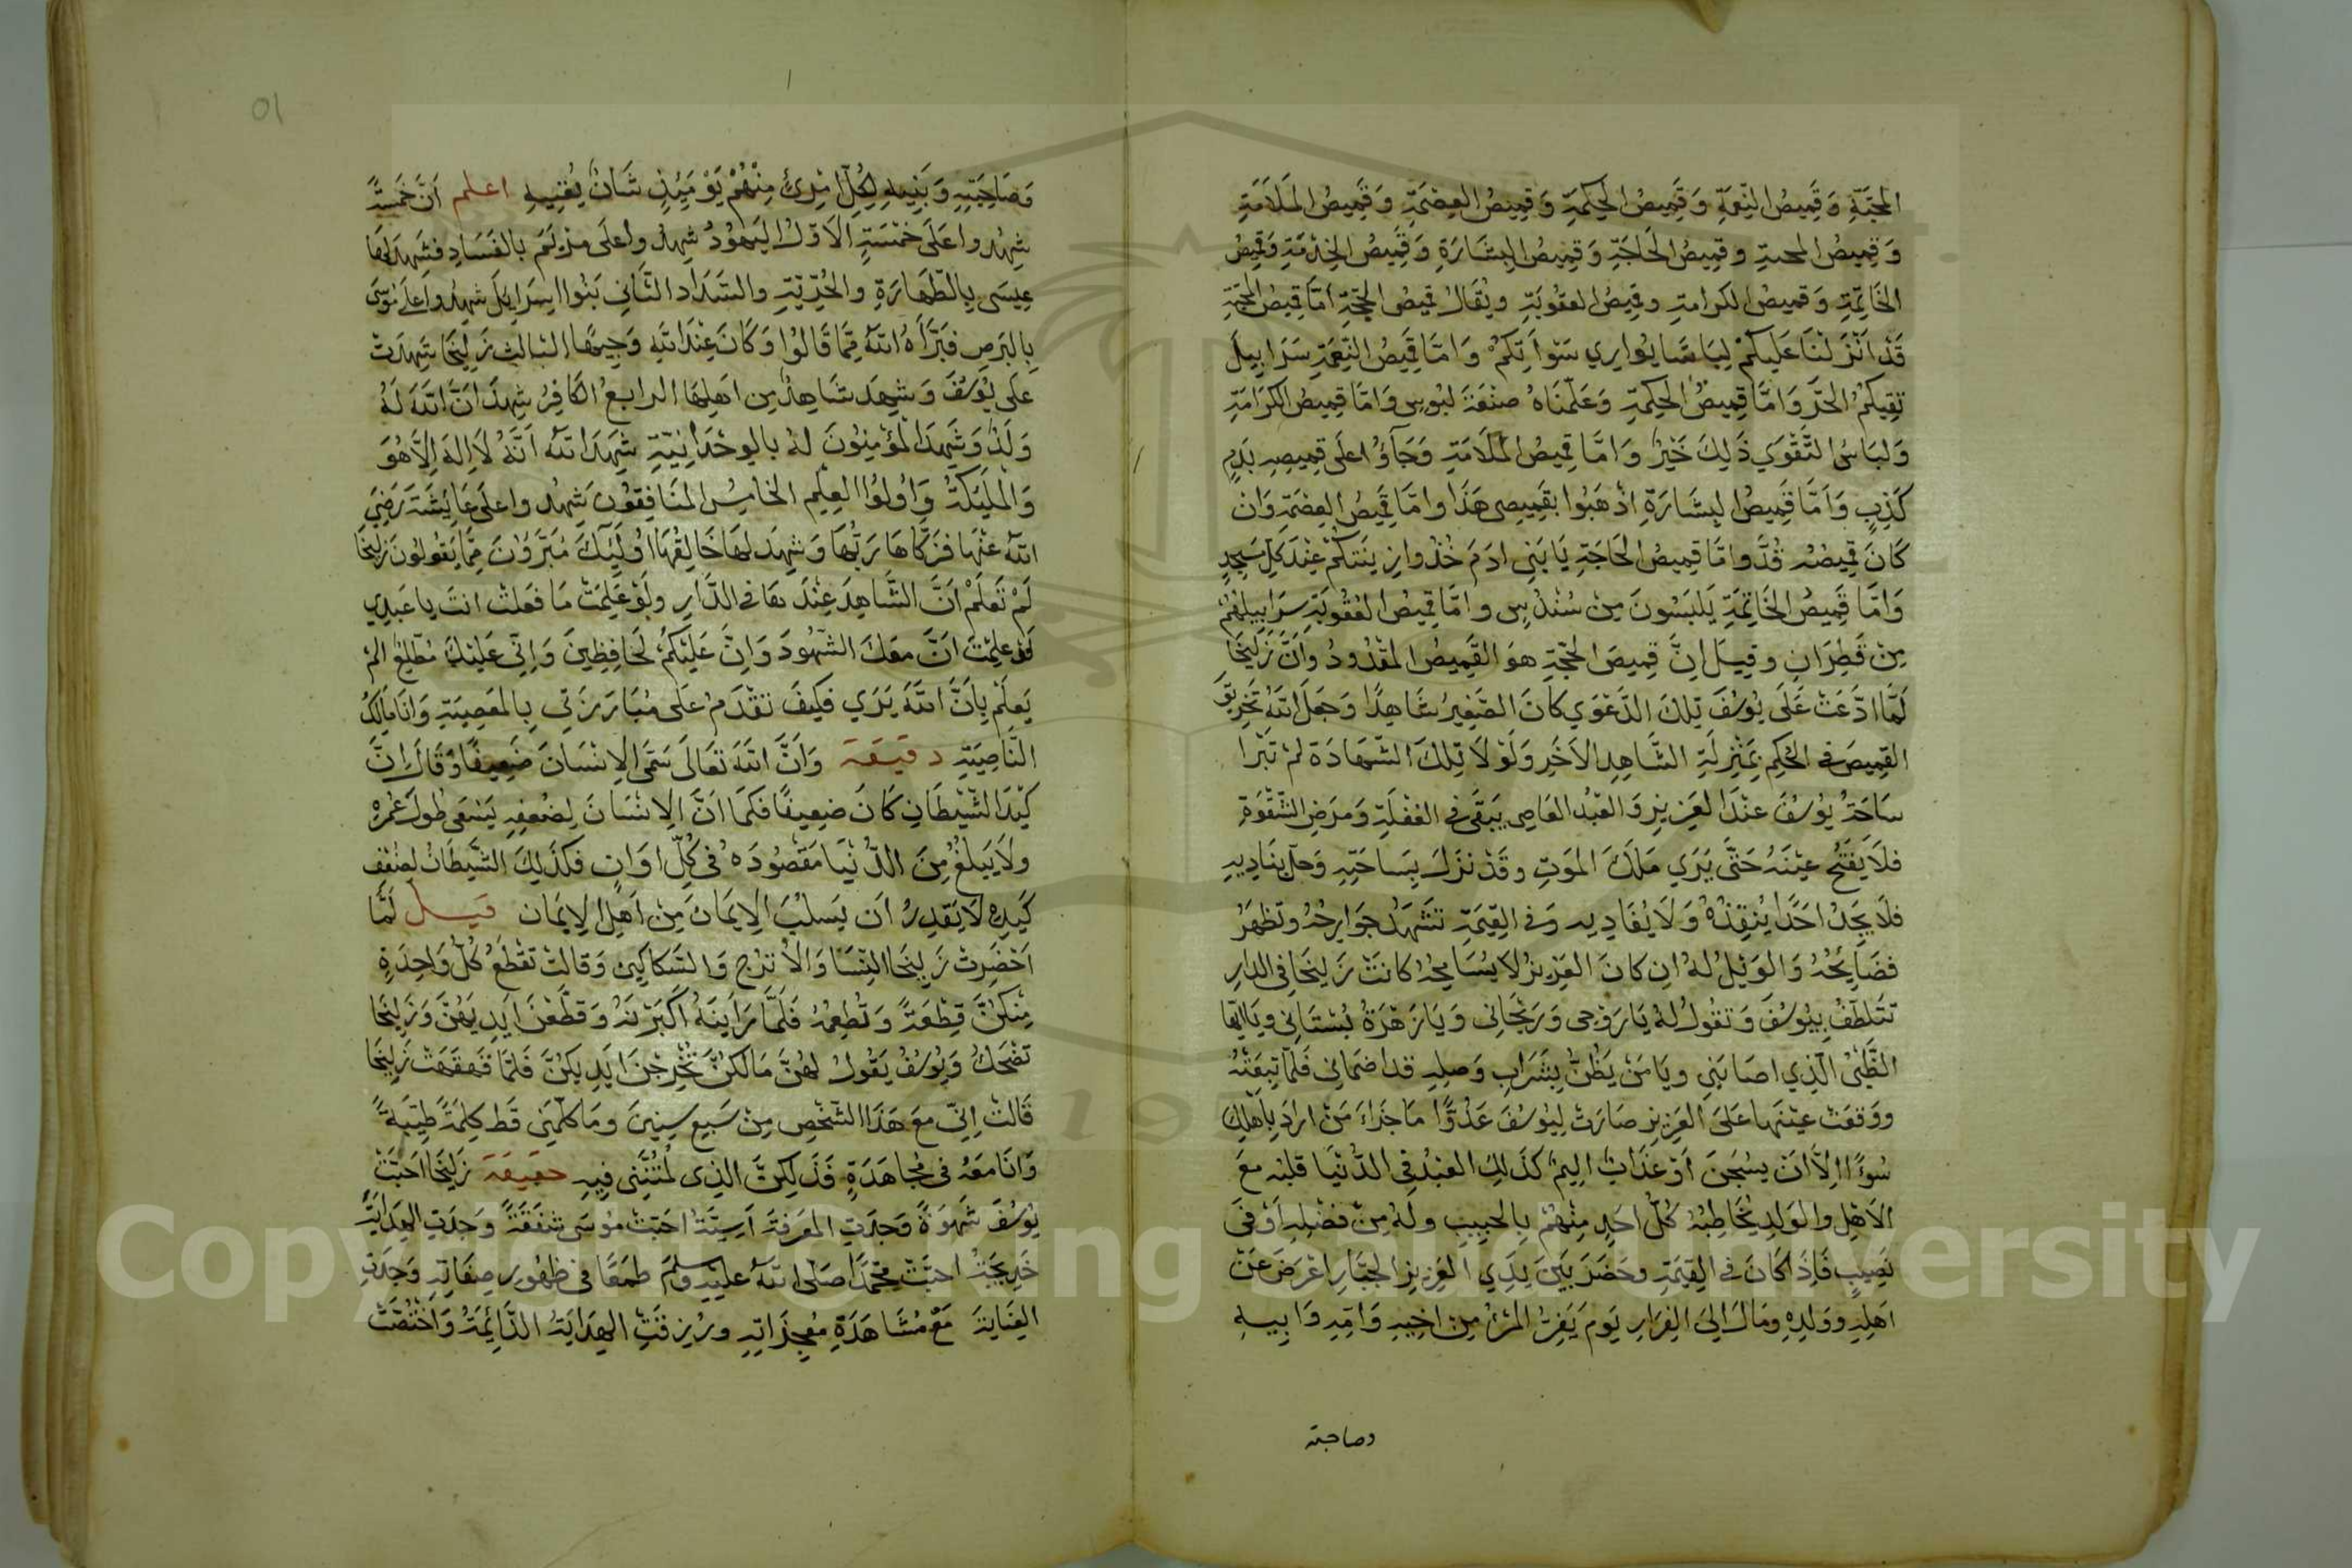 المحَبَّةِ وَقَمِيصُ النِّعمَةِ وَقَمِيصُ الحِكمَةِ وَقَمِيصُ العِصْمَةِ وَقَمِيصُ المَلَامَةِ
وَقمِيصُ المحبةِ وقمِيصُ الحَاجَةِ وَقمِيصُ البِشَارَةِ وَقَمِيصُ الخِدْمَةِ وَقَمِيصُ
الخَاتِمَةِ وَقميصُ الكرامةِ وقميصُ العقُوبَةِ ويُقَالُ قميصُ الحجَّةِ امَّا قَمِيصُ المحَبَّةِ
قَدْ اَنْزَلْنَا عَلَيكُمْ لِبَاسًا يُوارِي سَوْاَتِكُمْ وَامَّا قَمِيصُ النِّعمَةِ سَرَابِيلَ
تَقِيكُمُ الحَرَّ وَامَّا قَمِيصُ الحِكمَةِ وَعَلَّمْنَاهُ صَنْعَةَ لَبُوسٍ وَامَّا قَمِيصُ الكَرَامَةِ
وَلِبَاسُ التَّقْوَي ذَلِكَ خَيْرٌ وَامَّا قَمِيصُ المَلَامَةِ وَجَآؤُا عَلَى قمِيصِهِ بِدَمٍ
كَذِبٍ وَاَمَّا قَمِيصُ البِشَارَةِ اذْهَبُوا بِقَمِيصِى هَذَا وامَّا قَمِيصُ العِصْمَةِ وَان
كَانَ قَمِيصُهُ قُدَّ وامَّا قمِيصُ الحَاجَةِ يَا بَنِى ادَمَ خُذُوا زِينَتَكُمْ عِنْدَ كلِّ مَسجِدٍ
وَامَّا قَمِيصُ الخَاتِمَةِ يَلْبَسُونَ مِنْ سُنْدُسٍ وامَّا قَمِيصُ العُقُوبَةِ سَرَابِيلهُمْ
مِنْ قَطِرَانٍ وقِيلَ اِنَّ قَمِيصَ الحُجَّةِ هوَ القَمِيصُ المَقْدُودُ وَاَنَّ زَلِيخَا
لَمَّا ادَّعَتْ عَلَى يُوسُفَ تِلكَ الدَّعْوَي كَانَ الصَّغِيرُ شَاهِدًا وَجَعَلَ اللهُ تَخرِيقَ
القمِيصَ فى الحُكمِ بمَنْزِلَةِ الشَّاهِدِ الآخَرِ وَلَوْلَا تِلكَ الشَّهَادَة لم تَبْرَا
سَاحَةُ يُوسُفَ عِنْدَ العَزِيزِ وَالعَبْدُ العَاصِى يَبقَى فى الغَفْلَةِ وَمَرَضِ الشَّقْوَةِ
فلَا يَفْتَحُ عَيْنَهُ حَتَّى يَرَي مَلَكَ المَوتِ وقَدْ نَزَلَ بِسَاحَتِهِ وَحلَّ بِنَادِيهِ
فَلَا يَجِدُ احَدًا يُنْقِذُهُ وَلَا يُفَادِيه وَفى القِيَمَةِ تَشْهَدُ جوَارِحُهُ وتَظهَرُ
فَضَايِحُهُ وَالوَيْلُ لهُ ان كانَ العَزِيزُ لَا يُسَامِحُهُ كانَتْ زَلِيخَا فى الدارِ
تَتَلَطَّفُ بِيُوسُفَ وَتقُولُ لهُ يَا رَوْحى وَرَيْحَانِى وَيَا زَهْرَةُ بُسْتَانِى ويَا ايّهَا
الظَّبْىُ الّذِي اصَابَنِى ويَا مَنْ يَظُنُّ بِشَرَابِ وَصلِهِ قد اضمَانِى فَلَمَّا تَبِعَتْهُ
ووَقعَتْ عَيْنَهَا عَلىَ العَزِيزِ صَارَتْ لِيُوسُفَ عَدُوًّا مَا جَزَاءُ مَنْ ارَادَ بِاَهلِكَ
سُوءًا اِلَّا اَنْ يسْجَنَ اَوْ عَذَابٌ اليمٌ كذَلِكَ العَبْدُ فِى الدُّنْيَا قَلبُه مَعَ
الاَهْلِ والوَلَدِ يُخَاطِبُهُ كُلُّ احَدٍ مِنْهُمْ بِالحَبِيبِ ولَهُ مِنْ فَضْلِهِ اَوْفىَ
نَصِيبٍ فَاِذَا كَانَ فى القِيَمَةِ وحَضَرَ بَيْنَ يَدَيِ العَزِيزِ الجبَّارِ اعْرَضَ عَنْ
اَهلِهِ ووَلَدِهِ ومَالَ الىَ الفِرَارِ يَومَ يَفِرُّ المَرْءُ مِن اخِيهِ وَامِّهِ وَابِيهِ
وصاحبته
وَصَاحِبَتِهِ وَبَنِيهِ لِكُلِّ امْرِئٍ مِنْهُمْ يَوْمَئِذٍ شَانٌ يُغْنِيهِ اعلم اَنَّ خَمْسَةً
شَهِدُوا عَلَى خَمْسَةٍ الاَوّلُ اليَهُودُ شَهِدُوا عَلَى مَرْيَمَ بالفَسَادِ فشَهِدَ لهَا
عِيسَى بِالطّهَارَةِ والحُرِّيَّةِ والسَّدَادِ الثَّانِى بَنُوا اِسرَايلَ شَهِدُوا عَلَى مُوسَى
بِالبَرَصِ فَبَرَّاَهُ اللهُ مِمَّا قَالُوا وَكَانَ عِنْدَ اللهِ وَجِيهًا الثالث زَلِيخَا شَهِدَتْ
عَلَى يُوسُفَ وَشَهِدَ شَاهِدٌ مِن اهلِهَا الرابعُ الكَافِرُ شَهِدَ اَنَّ اللهَ لَهُ
وَلَدٌ وَشَهِدَ المُؤمِنُونَ لهُ بالوحْدَانِيَّةِ شَهِدَ اللهُ اَنَّهُ لَا اِلهَ اِلَّا هُوَ
وَالمَلَئِكَةُ وَاُولُوا العِلمِ الخَامِسُ المنَافِقُونَ شَهِدُوا عَلَى عَايشَةَ رَضِىَ
اللهُ عَنْهَا فزَكَّاهَا رَبُّهَا وَشَهِدَ لهَا خَالِقُهَا اُولَئِكَ مُبَرَّؤُنَ مِمَّا يَقُولُونَ زَلِيخَا
لَمْ تَعْلَمْ اَنَّ الشَّاهِدَ عِنْدَهَا فى الدَّارِ ولَوْ عَلِمَتْ مَا فَعَلتْ انتَ يا عَبدِي
قَدْ عَلِمْتَ اَنَّ مَعَكَ الشّهُودَ وَاِنَّ عَلَيْكُمْ لَحَافِظِينَ وَاِنِّى عَلَيْكَ مُطَّلِعٌ المْ
يَعلَمْ بِاَنَّ اللهَ يَرَي فكَيفَ تقْدَمُ عَلَى مُبَارَزَتِى بِالمَعصِيَةِ وَانَا مَالِكُ
النَّاصِيَةِ دقيقة وَاَنَّ اللهَ تعَالَى سَمَّى الاِنْسَانَ ضَعِيفًا وَقَالَ اِنَّ
كَيْدَ الشَّيْطَانِ كَانَ ضعِيفًا فكَمَا اَنَّ الاِنْسَانَ لِضُعفِهِ يَسْعَى طُولَ عُمْرِهْ
ولَا يَبلُغُ مِنَ الدُّنْيَا مَقْصُودَهُ فى كلِّ اوَانٍ فكَذَلِكَ الشَّيطَانُ لِضُعْفِ
كَيدِهِ لَا يَقدِرُ اَن يَسلُبَ الاِيمَانَ مِنْ اَهلِ الاِيمَان قيل لَمَّا
اَحْضَرتْ زَلِيخَا النِّسَا وَالاُتْرُجَ وَالسَّكَاكِينَ وَقَالتْ تقْطَعُ كُلُّ وَاحِدَةٍ
مِنْكُنَّ قِطْعَةً وَتُطعِمُهُ فَلَمَّا رَاَيْنَهُ اَكْبَرْنَهُ وَقطَّعْنَ ايْدِيَهُنَّ وَزَلِيخَا
تَضْحَكُ وَيُوسُفُ يَقُولُ لهُنَّ مَا لكُنَّ تُخْرِجْنَ اَيْدِيكُنَّ فَلمَّا قَهْقَهَتْ زَلِيخَا
قَالتْ اِنِّى مَعَ هَذَا الشَّخْصِ مِنْ سَبعِ سِنِينَ ومَا كلَّمَنِى قَط كَلِمَةً طَيِّبَةً
وَانَا مَعَهُ فى مُجَاهَدَةٍ فَذَلِكُنَّ الذِى لُمْتُنَّنِى فِيهِ حقيقة زَلِيخَا احَبَّتْ
يُوسُفَ شَهوَةً وَجدَتِ المَعرِفَةَ آسِيَةُ احَبّتْ مُوسَى شَفَقَةً وَجدَتِ الهِدَايَةَ
خَدِيجَةُ احبّتْ مُحَمَّدًا صَلَّى اللهُ عليهِ وسلّمَ طَمَعًا فى ظهُورِ صِفَاتِهِ وَجدَتِ
العِنَايَةَ مَعَ مُشَاهَدَةِ مُعجِزَاتِهِ ورُزِقَتِ الهِدَايَةُ الدَّائِمَةُ وَاخْتُصَّتْ
Copyright © King Saud University